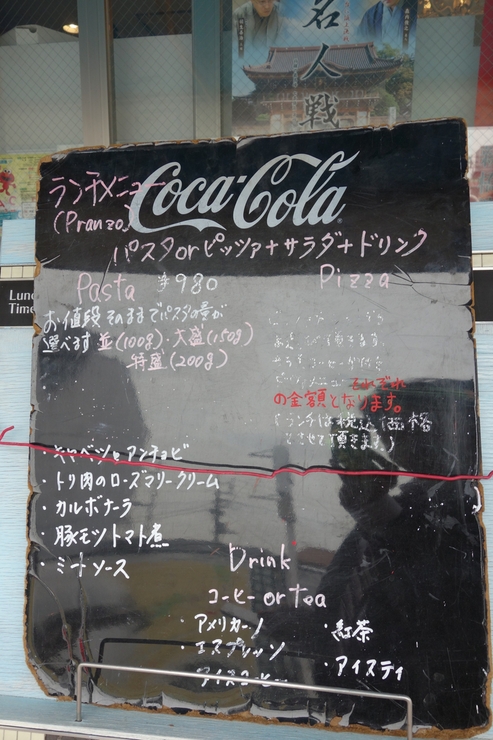 名人戦
Coca-Cola
ランチメニュー
(Pranzo)
パスタorピッツァ+サラダ+ドリンク
Pasta ¥980
Pizza
Time
お値段そのままでパスタの量が
選べます 並(100g)・大盛(150g)
特盛(200g)
それぞれ
の金額となります。
とさせて頂きます)
キャベツとアンチョビ
・トリ肉のローズマリークリーム
・カルボナーラ
・豚モツトマト煮
・ミートソース
Drink
コーヒー or tea
・アメリカーノ
・エスプレッソ
・アイスコーヒー
・紅茶
・アイスティ